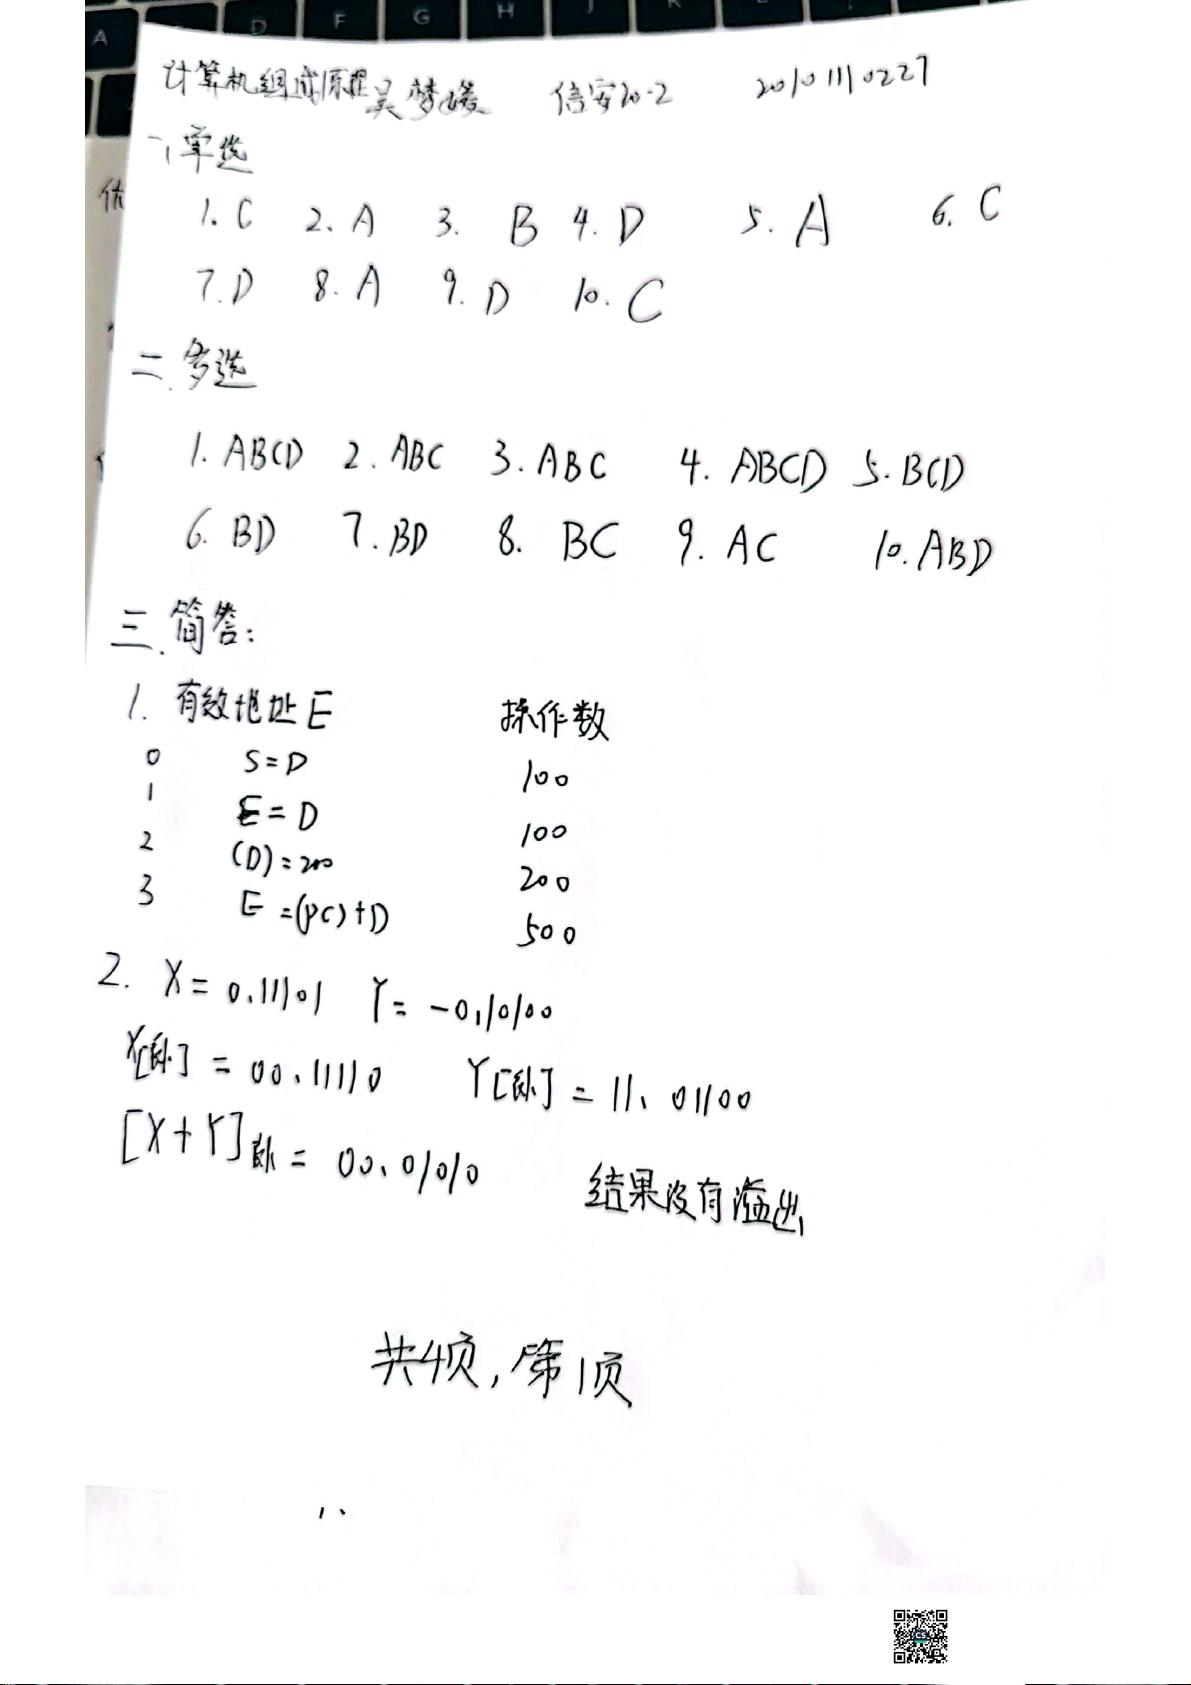 计算机组成原理 吴梦媛 信安20-2 20101110227
一、单选
1. C 2. A 3. B 4. D 5. A 6. C
7. D 8. A 9. D 10. C
二、多选
1. ABCD 2. ABC 3. ABC 4. ABCD 5. BCD
6. BD 7. BD 8. BC 9. AC 10. ABD
三、简答:
1. 有效地址E 操作数
0 S=D 100
1 E=D 100
2 (D)=200 200
3 E=(PC)+D 500
2. X=0.11101 Y=-0.10100
X[补]=00.11110 Y[补]=11.01100
[X+Y]补=00.01010 结果没有溢出
共4页,第1页